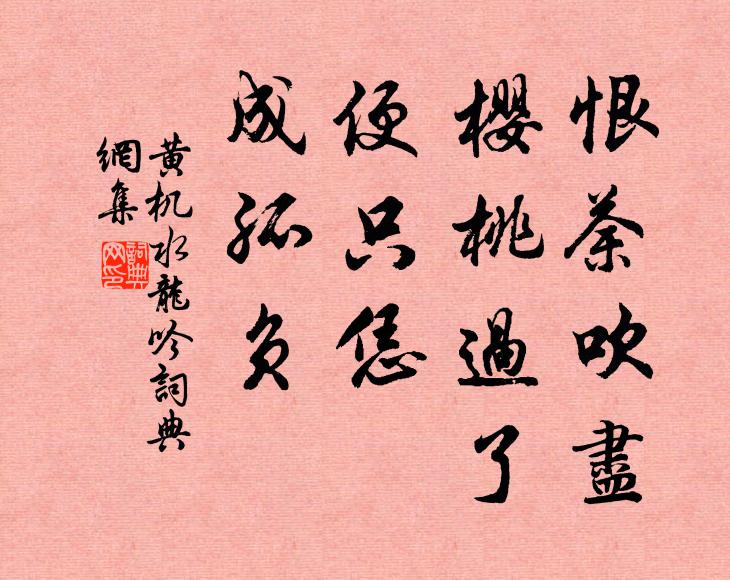 恨荼吹盡
櫻桃過了
便只恁
成孤负
黄机水龍吟詞典
網集
詞典網印